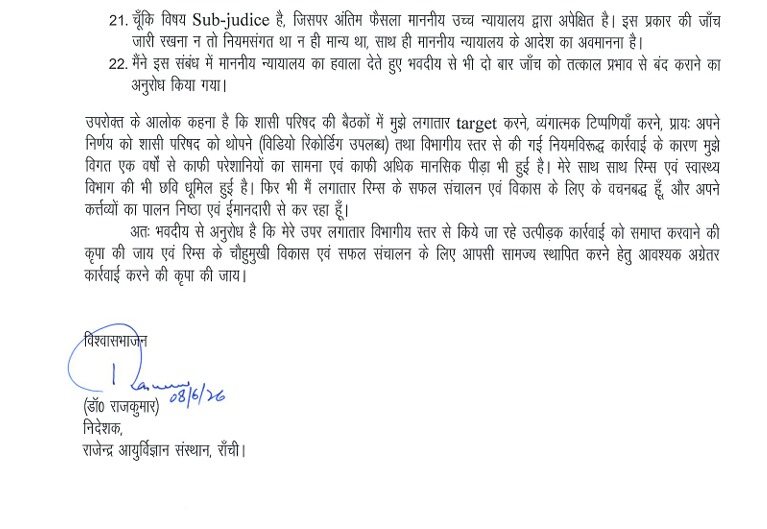 21. चूँकि विषय Sub-judice है, जिसपर अंतिम फैसला माननीय उच्च न्यायालय द्वारा अपेक्षित है। इस प्रकार की जाँच
जारी रखना न तो नियमसंगत था न ही मान्य था, साथ ही माननीय न्यायालय के आदेश का अवमानना है।
22. मैंने इस संबंध में माननीय न्यायालय का हवाला देते हुए भवदीय से भी दो बार जाँच को तत्काल प्रभाव से बंद कराने का
अनुरोध किया गया।
उपरोक्त के आलोक कहना है कि शासी परिषद की बैठकों में मुझे लगातार target करने, व्यंगात्मक टिप्पणियाँ करने, प्रायः अपने
निर्णय को शासी परिषद को थोपने (विडियो रिकोर्डिंग उपलब्ध) तथा विभागीय स्तर से की गई नियमविरूद्ध कार्रवाई के कारण मुझे
विगत एक वर्षों से काफी परेशानियों का सामना एवं काफी अधिक मानसिक पीड़ा भी हुई है। मेरे साथ साथ रिम्स एवं स्वास्थ्य
विभाग की भी छवि धूमिल हुई है। फिर भी मैं लगातार रिम्स के सफल संचालन एवं विकास के लिए के वचनबद्ध हूँ, और अपने
कर्त्तव्यों का पालन निष्ठा एवं ईमानदारी से कर रहा हूँ।
अतः भवदीय से अनुरोध है कि मेरे उपर लगातार विभागीय स्तर से किये जा रहे उत्पीड़क कार्रवाई को समाप्त करवाने की
कृपा की जाय एवं रिम्स के चौहुमुखी विकास एवं सफल संचालन के लिए आपसी सामज्य स्थापित करने हेतु आवश्यक अग्रेतर
कार्रवाई करने की कृपा की जाय।
विश्वासभाजन
08/6/26
(डॉ0 राजकुमार)
निदेशक,
राजेन्द्र आयुर्विज्ञान संस्थान, राँची।